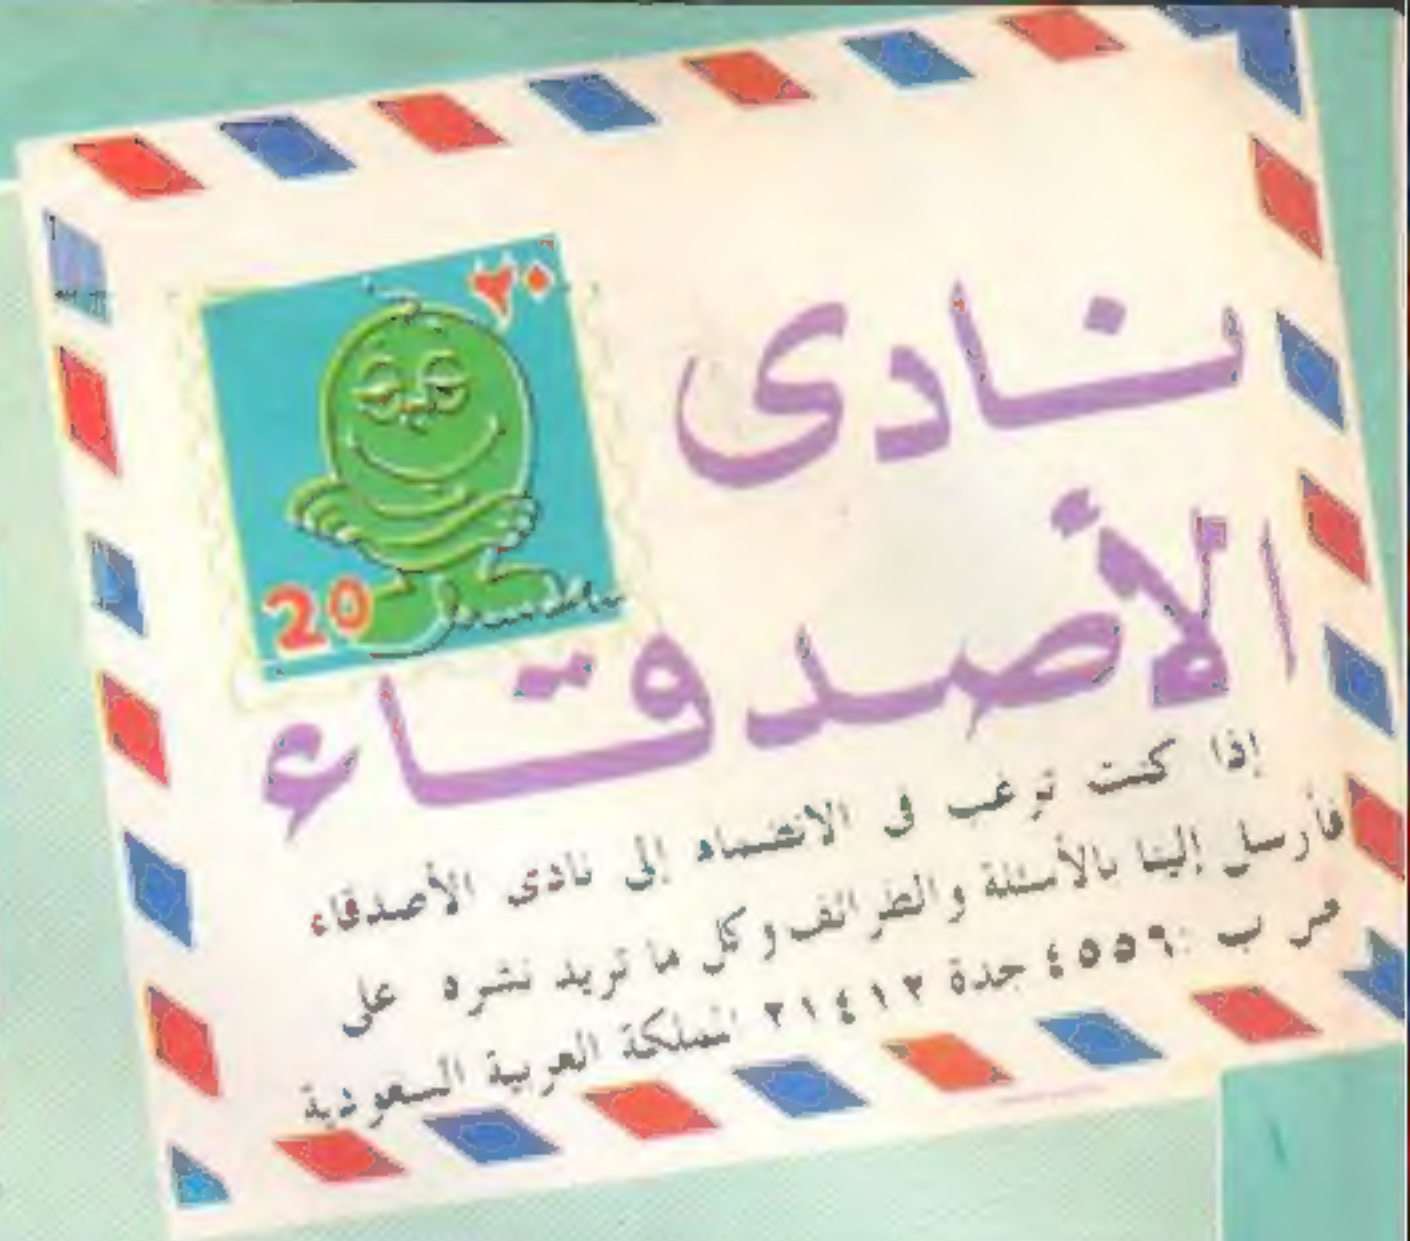 ٢٠
نادى
الأصدقاء
20
إذا كنت ترغب فى الانضمام إلى نادى الأصدقاء
فأرسل إلينا بالأسئلة والطرائف وكل ما تريد نشره على
ص ب : ٤٥٥٩ جدة ٢١٤١٢ المملكة العربية السعودية